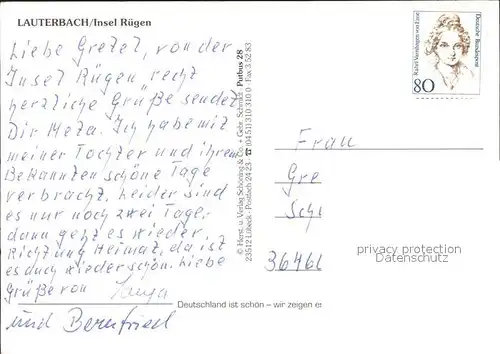 LAUTERBACH/Insel Rügen
Liebe Gretel, von der
Insel Rügen recht
herzliche Grüße sendet
Dir Meta. Ich habe mit
meiner Tochter und ihrem
Bekannten schöne Tage
verbracht, leider sind
es nur noch zwei Tage,
dann geht es wieder,
Richtung Heimat, da ist
es auch wieder schön. Liebe
Grüße von Tanja
und Bernfried
© Herst. u. Verlag Schöning & Co. + Gebr. Schmidt · Putbus 28
23512 Lübeck · Postfach 24 23 · ☎ (04 51) 310 310 0 · Fax 3 52 83
Deutsche Bundespost
Rahel Varnhagen von Ense
80
Frau
Gre
Sch
36460
privacy protection
Datenschutz
Deutschland ist schön – wir zeigen es